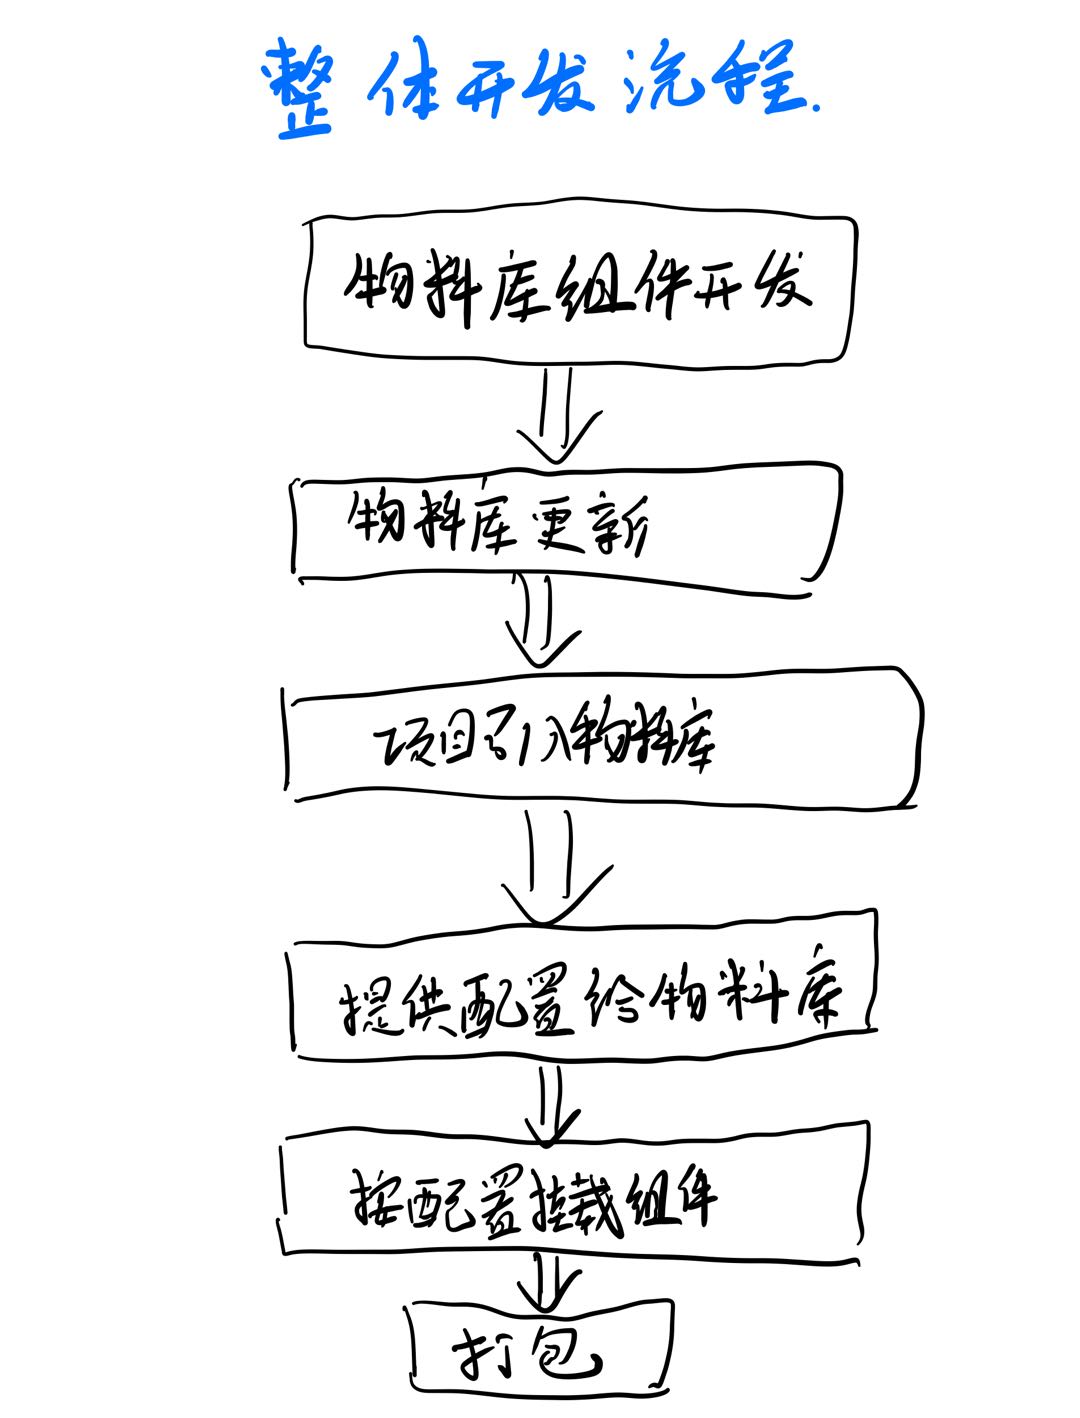 整体开发流程.
物料库组件开发
物料库更新
项目引入物料库
提供配置给物料库
按配置挂载组件
打包